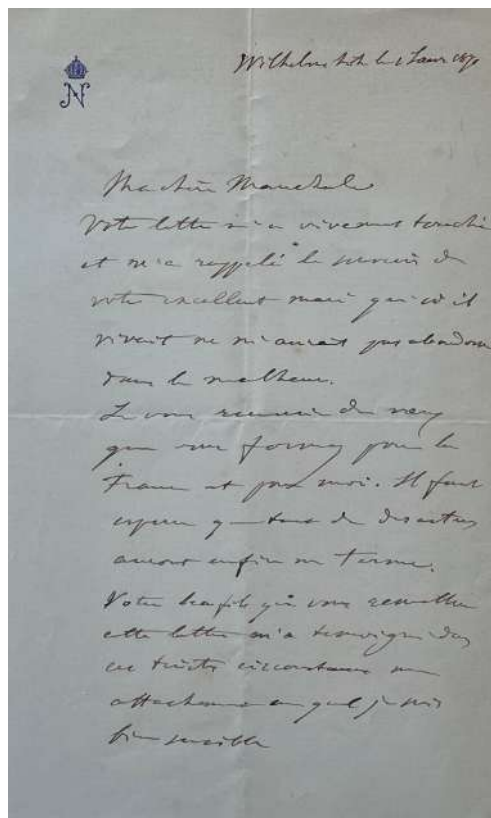 N
Wilhelmshöhe le 1 Janv 1871
Ma chère Maréchale
Votre lettre m'a vivement touché
et m'a rappelé le souvenir de
votre excellent mari qui s'il
vivait ne m'aurait pas abandonné
dans le malheur.
Je vous remercie des vœux
que vous formez pour la
France et pour moi. Il faut
espérer que tant de désastres
auront enfin un terme.
Votre qui vous remettra
cette lettre m'a témoigné dans
ces tristes circonstances un
attachement auquel je suis
bien sensible